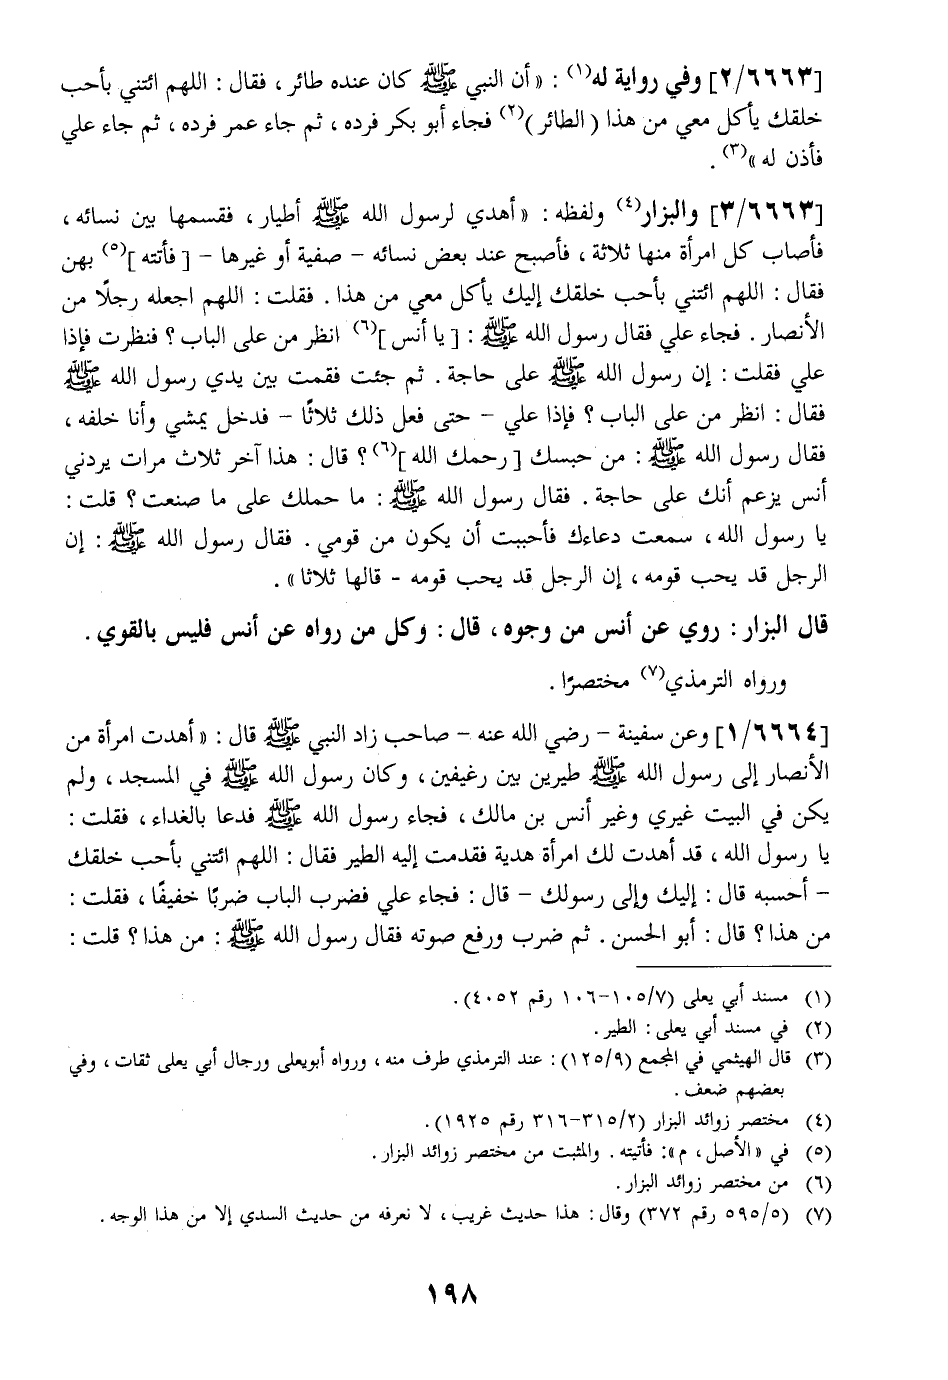 [٢/٦٦٦٣] وفي رواية له(١) : « أن النبي ﷺ كان عنده طائر ، فقال : اللهم ائتني بأحب
خلقك يأكل معي من هذا ( الطائر )(٢) فجاء أبو بكر فرده ، ثم جاء عمر فرده ، ثم جاء علي
فأذن له »(٣) .
[٣/٦٦٦٣] والبزار(٤) ولفظه : « أهدي لرسول الله ﷺ أطيار ، فقسمها بين نسائه ،
فأصاب كل امرأة منها ثلاثة ، فأصبح عند بعض نسائه – صفية أو غيرها – [ فأتته ](٥) بهن
فقال : اللهم ائتني بأحب خلقك إليك يأكل معي من هذا . فقلت : اللهم اجعله رجلًا من
الأنصار . فجاء علي فقال رسول الله ﷺ : [ يا أنس ](٦) انظر من على الباب ؟ فنظرت فإذا
علي فقلت : إن رسول الله ﷺ على حاجة . ثم جئت فقمت بين يدي رسول الله ﷺ
فقال : انظر من على الباب ؟ فإذا علي – حتى فعل ذلك ثلاثًا – فدخل يمشي وأنا خلفه ،
فقال رسول الله ﷺ : من حبسك [ رحمك الله ](٦) ؟ قال : هذا آخر ثلاث مرات يردني
أنس يزعم أنك على حاجة . فقال رسول الله ﷺ : ما حملك على ما صنعت ؟ قلت :
يا رسول الله ، سمعت دعاءك فأحببت أن يكون من قومي . فقال رسول الله ﷺ : إن
الرجل قد يحب قومه ، إن الرجل قد يحب قومه - قالها ثلاثا » .
قال البزار : روي عن أنس من وجوه ، قال : وكل من رواه عن أنس فليس بالقوي .
ورواه الترمذي(٧) مختصرًا .
[١/٦٦٦٤] وعن سفينة – رضي الله عنه – صاحب زاد النبي ﷺ قال : « أهدت امرأة من
الأنصار إلى رسول الله ﷺ طيرين بين رغيفين ، وكان رسول الله ﷺ في المسجد ، ولم
يكن في البيت غيري وغير أنس بن مالك ، فجاء رسول الله ﷺ فدعا بالغداء ، فقلت :
يا رسول الله ، قد أهدت لك امرأة هدية فقدمت إليه الطير فقال : اللهم ائتني بأحب خلقك
– أحسبه قال : إليك وإلى رسولك – قال : فجاء علي فضرب الباب ضربًا خفيفًا ، فقلت :
من هذا ؟ قال : أبو الحسن . ثم ضرب ورفع صوته فقال رسول الله ﷺ : من هذا ؟ قلت :
(١) مسند أبي يعلى (١٠٥/٧–١٠٦ رقم ٤٠٥٢) .
(٢) في مسند أبي يعلى : الطير .
(٣) قال الهيثمي في المجمع (١٢٥/٩) : عند الترمذي طرف منه ، ورواه أبويعلى ورجال أبي يعلى ثقات ، وفي
بعضهم ضعف .
(٤) مختصر زوائد البزار (٣١٥/٢–٣١٦ رقم ١٩٢٥) .
(٥) في « الأصل ، م » : فأتيته . والمثبت من مختصر زوائد البزار .
(٦) من مختصر زوائد البزار .
(٧) (٥٩٥/٥ رقم ٣٧٢) وقال : هذا حديث غريب ، لا نعرفه من حديث السدي إلا من هذا الوجه .
١٩٨